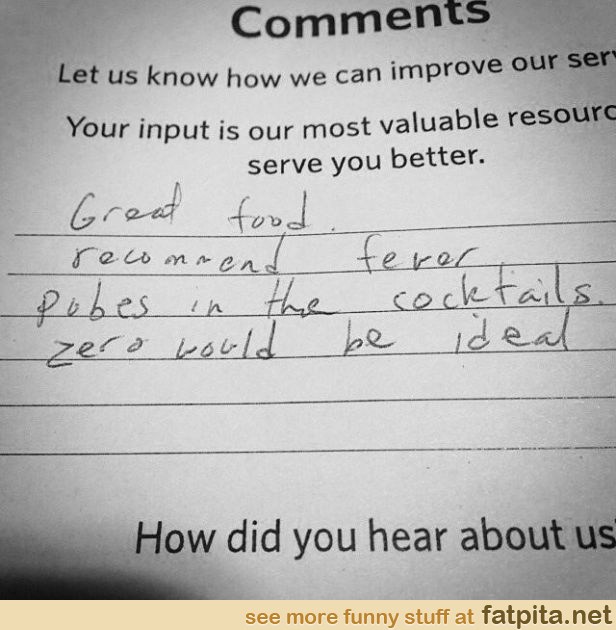 Comments
Let us know how we can improve our serv
Your input is our most valuable resourc
serve you better.
Great food.
recommend fewer
pubes in the cocktails.
zero would be ideal
How did you hear about us
see more funny stuff at fatpita.net